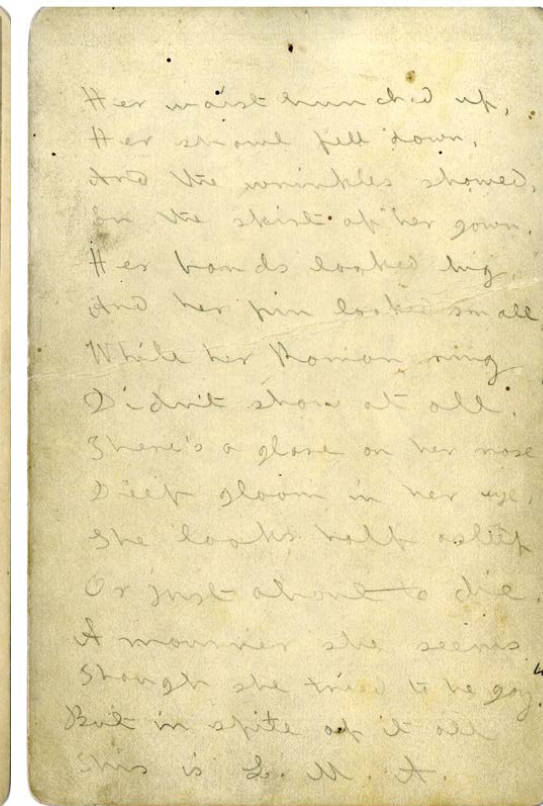 Her waist hunched up,
Her shawl fell down,
And the wrinkles showed,
On the skirt of her gown.
Her hands looked big,
And her pin looked small,
While her Roman ring
Didn't show at all.
There's a glare on her nose
Deep gloom in her eye,
She looks half asleep
Or just about to die.
A mourner she seems
Though she tried to be gay,
But in spite of it all
This is L. M. A.